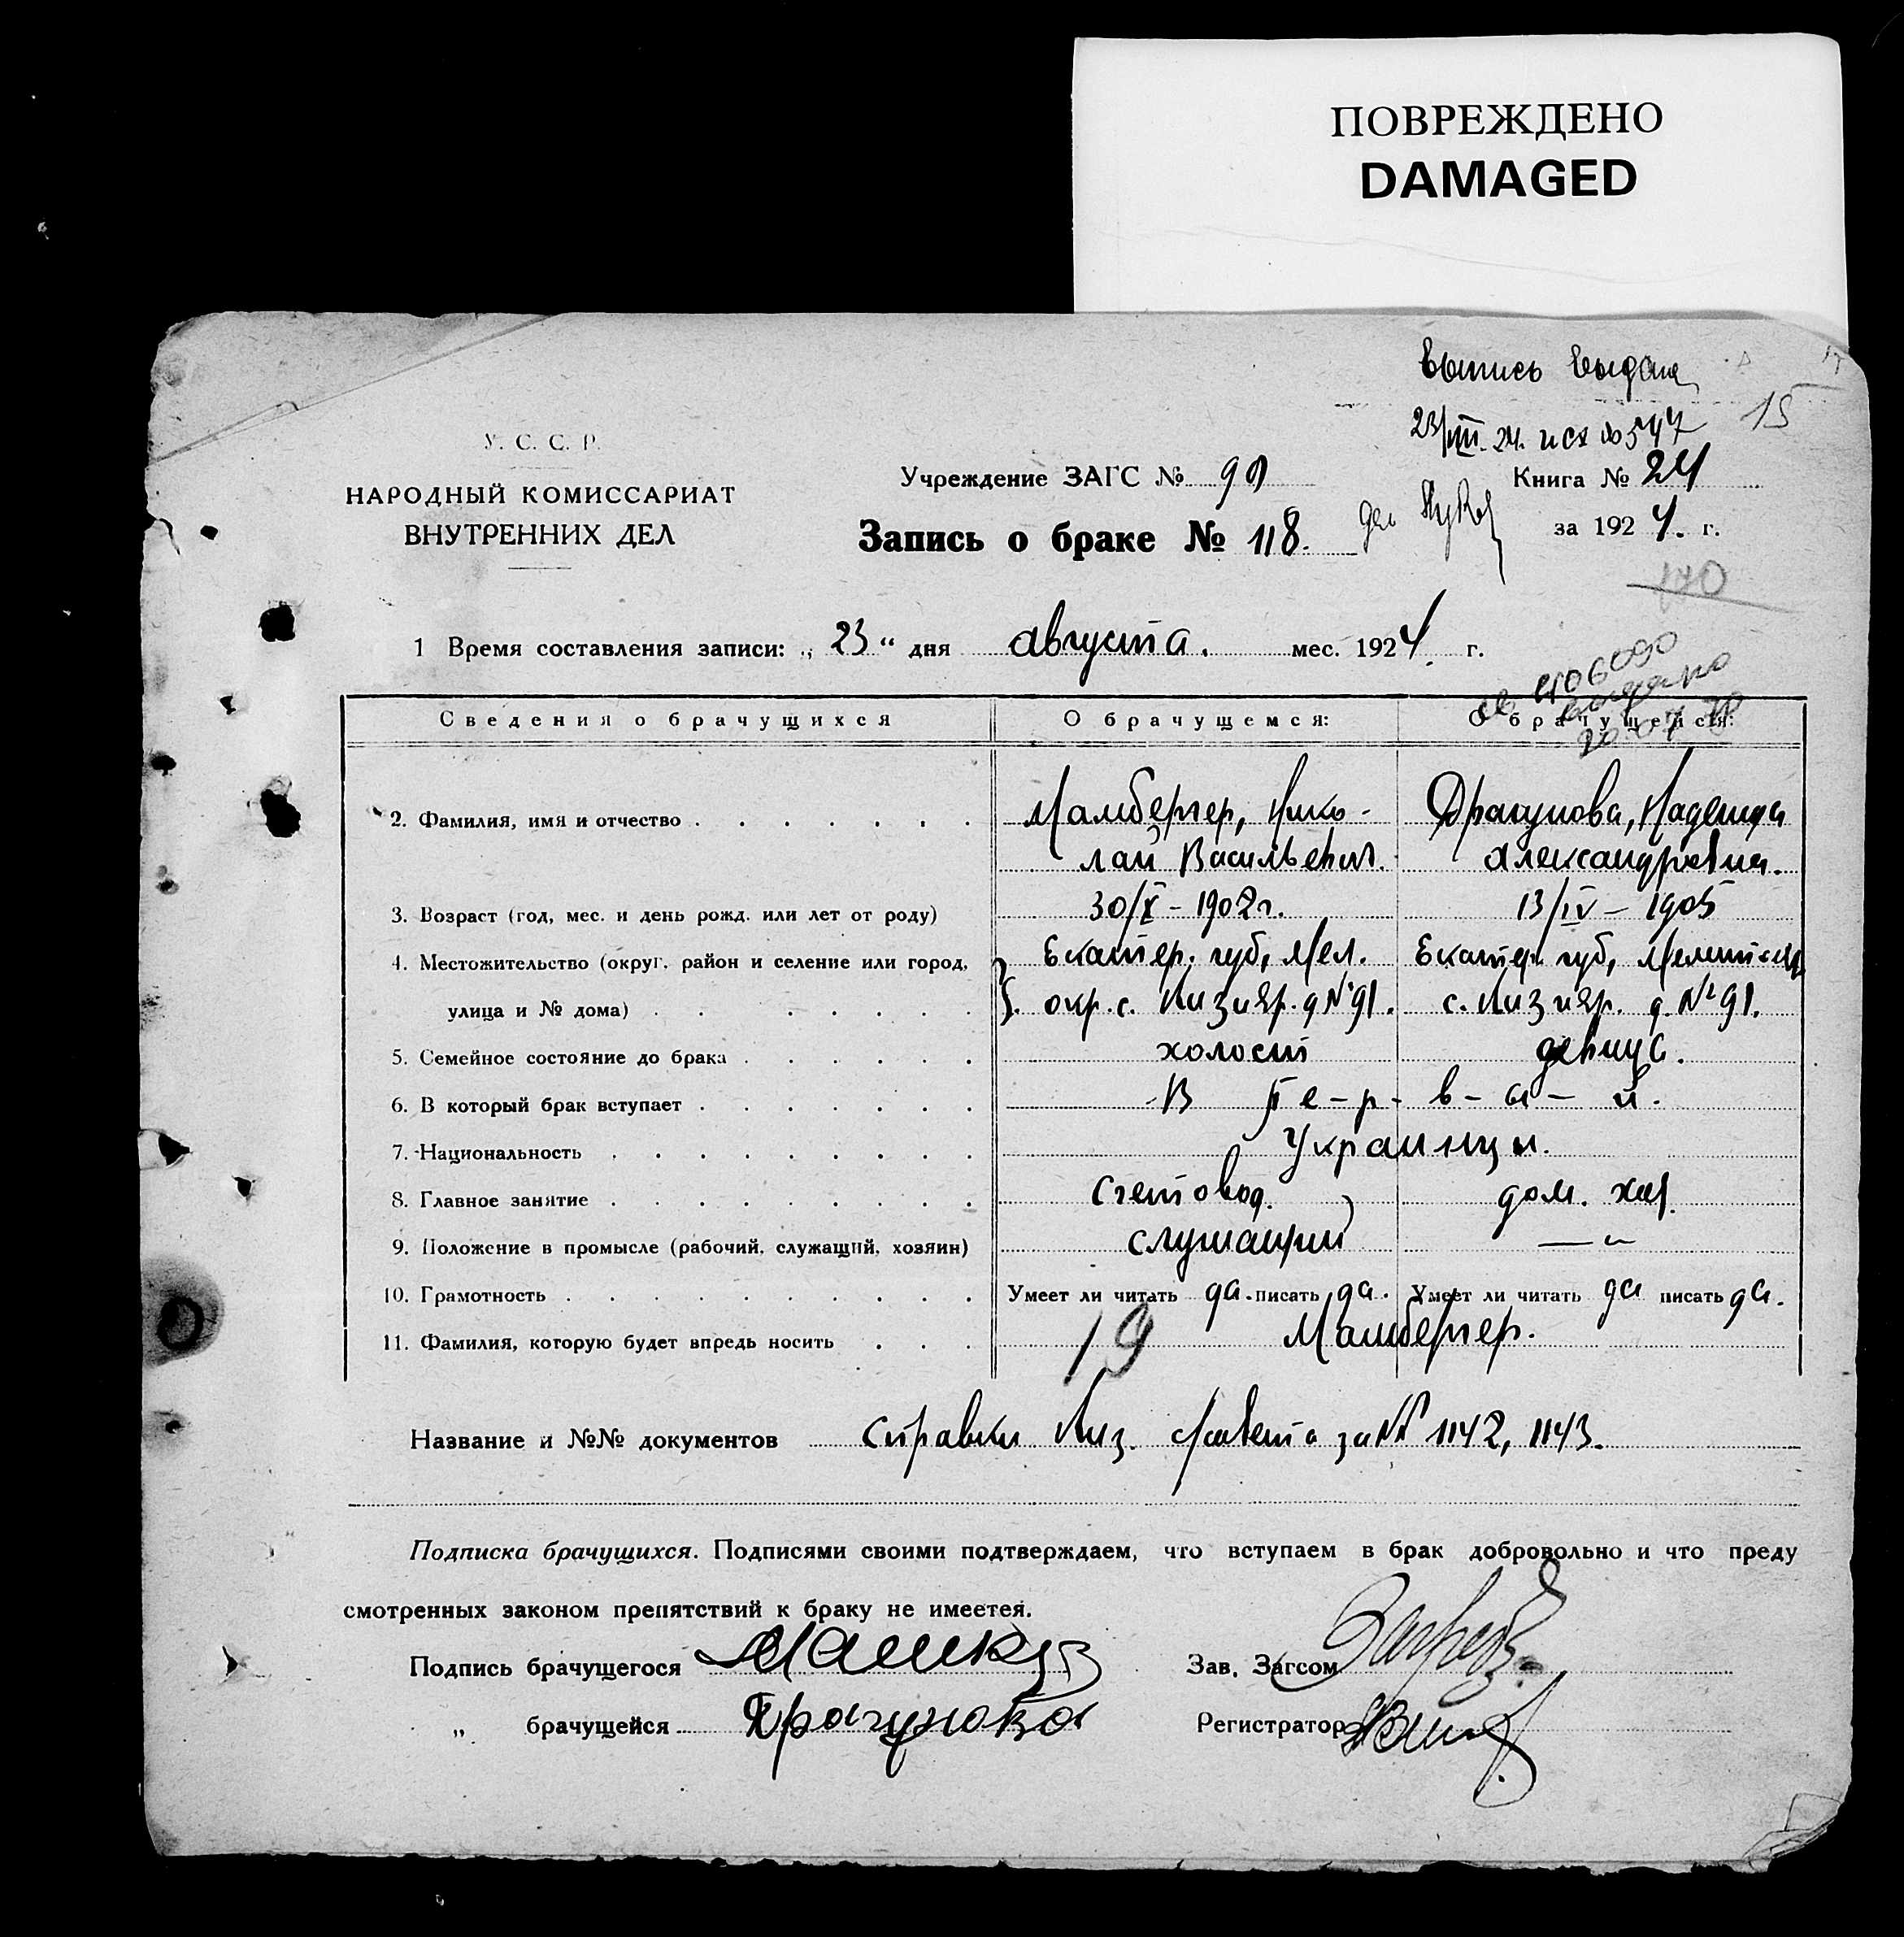 ПОВРЕЖДЕНО
DAMAGED
Выпись выдана
23/VIII. 24. исх № 547 15
У. С. С. Р.
НАРОДНЫЙ КОМИССАРИАТ
ВНУТРЕННИХ ДЕЛ
Учреждение ЗАГС № 90
Книга № 24
Запись о браке № 118.
за 1924. г.
170
1 Время составления записи: „ 23 “ дня августа. мес. 1924. г.
090
выдано
20 07
Сведения о брачущихся О брачущемся: О брачущейся:
2. Фамилия, имя и отчество Мамбергер, Нико- Драгунова, Надежда
лай Васильевич. Александровна.
3. Возраст (год, мес. и день рожд. или лет от роду) 30/X - 1902 г. 13/IV - 1905
4. Местожительство (округ. район и селение или город, Екатер. губ, Мел. Екатер. губ,
улица и № дома) окр. с. Кизияр. д №91. с. Кизияр. д. №91.
5. Семейное состояние до брака холост девица.
6. В который брак вступает В Пе-р-в-ы-й.
7. Национальность Украинцы.
8. Главное занятие Счетовод. дом. хоз.
9. Положение в промысле (рабочий, служащий, хозяин) служащий — „
10. Грамотность Умеет ли читать да. писать да. Умеет ли читать да писать да.
11. Фамилия, которую будет впредь носить 19 Мамбергер.
Название и №№ документов Справки Киз. с/совета за №№ 1142, 1143.
Подписка брачущихся. Подписями своими подтверждаем, что вступаем в брак добровольно и что преду
смотренных законом препятствий к браку не имеетея.
Подпись брачущегося Зав. Загсом
„ брачущейся Драгунова Регистратор